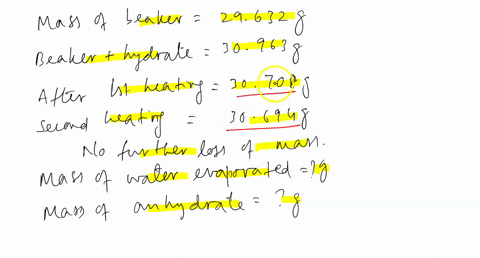 Mass of beaker = 29.632 g
Beaker + hydrate = 30.963 g
After 1st heating = 30.708 g
Second heating = 30.694 g
No further loss of mass.
Mass of water evaporated = ? g
Mass of anhydrate = ? g